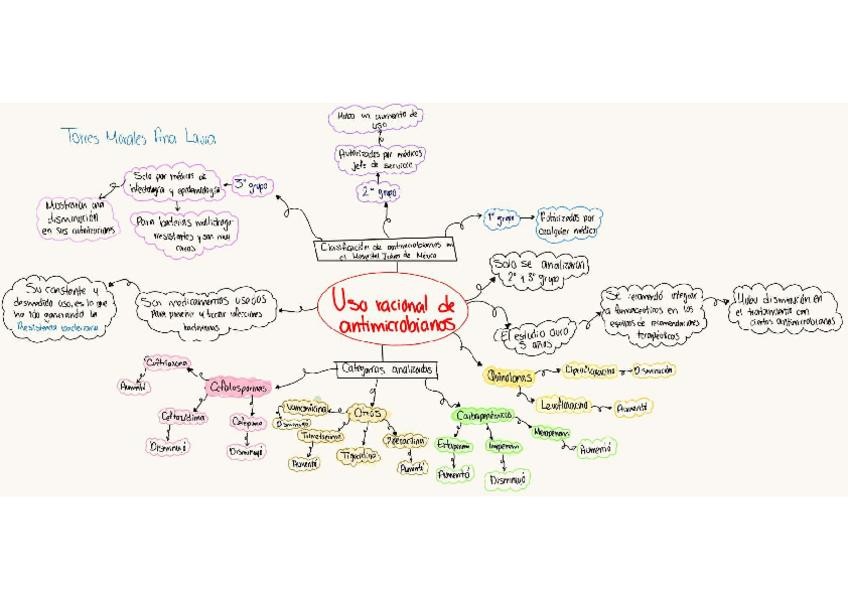 Torres Morales Ana Laura
Hubo un aumento de
uso
Autorizados por médicos
jefe de servicio
2° grupo
Solo por médicos de
infectología y epidemiología
3° grupo
Mostraron una
disminución
en sus autorizaciones
Para bacterias multidrogo
resistentes y son muy
caros
1° grupo
Autorizados por
cualquier médico
Clasificación de antimicrobianos en
el Hospital Juárez de México
Solo se analizarón
2° y 3° grupo
Uso racional de
antimicrobianos
Son medicamentos usados
para prevenir y tratar infecciones
bacterianas
Su constante y
desmedido uso, es lo que
ha ido generando la
Resistencia bacteriana
El estudio duro
5 años
Se recomendó integrar
a farmacéuticos en los
equipos de recomendaciones
terapéuticas
Hubo disminución en
el tratamiento con
ciertos antimicrobianos
Categorías analizadas
Cefalosporinas
Ceftriaxona
Aumentó
Ceftazidima
Disminuyó
Cefepima
Disminuyó
Otros
Vancomicina
Disminuyó
Aumentó
Tigeciclina
Piperacilina
Aumentó
Carbapenémicos
Ertapenem
Aumentó
Imipenem
Disminuyó
Meropenem
Aumentó
Quinolonas
Ciprofloxacino
Disminución
Levofloxacino
Aumentó